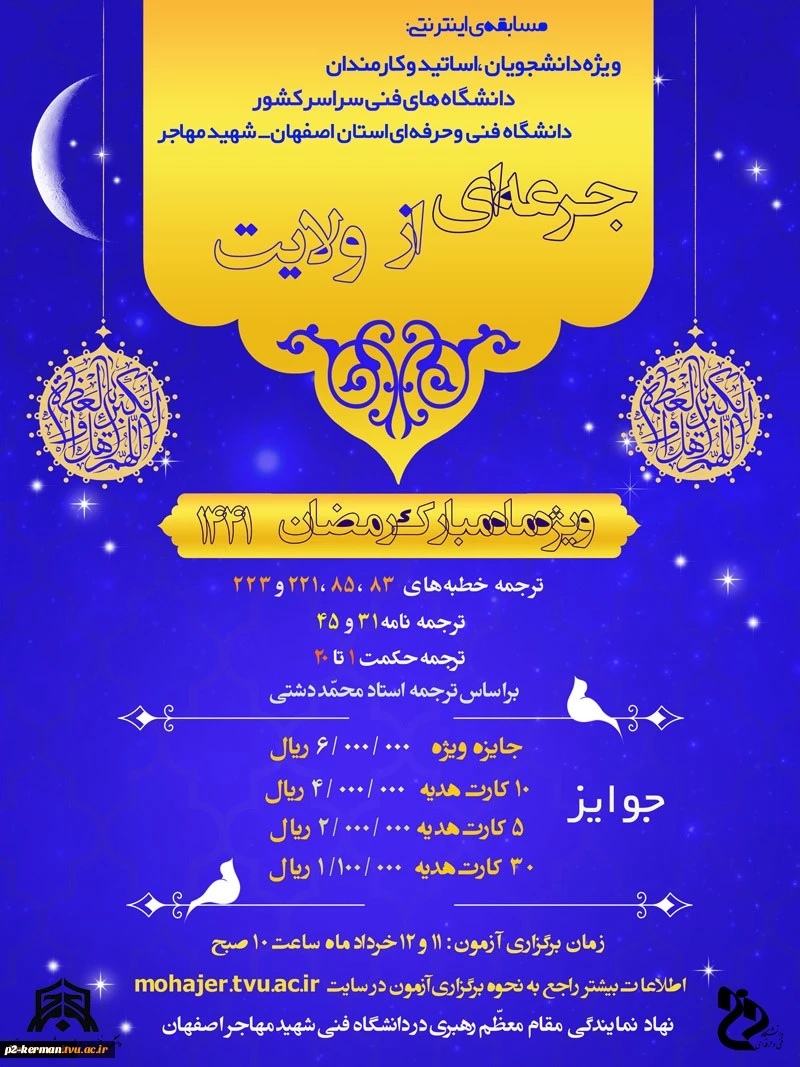 مسابقه‌ی اینترنتی:
ویژه دانشجویان، اساتید و کارمندان
دانشگاه های فنی سراسر کشور
دانشگاه فنی و حرفه ای استان اصفهان_ شهید مهاجر
جرعه‌ای از ولایت
اللهم اهل الکبریاء و العظمه
اللهم اهل الکبریاء و العظمه
ویژه ماه مبارک رمضان ۱۴۴۱
ترجمه خطبه‌های ۸۳، ۸۵، ۲۲۱ و ۲۲۳
ترجمه نامه ۳۱ و ۴۵
ترجمه حکمت ۱ تا ۲۰
براساس ترجمه استاد محمّد دشتی
جوایز
جایزه ویژه ۶/۰۰۰/۰۰۰ ریال
۱۰ کارت هدیه ۴/۰۰۰/۰۰۰ ریال
۵ کارت هدیه ۲/۰۰۰/۰۰۰ ریال
۳۰ کارت هدیه ۱/۱۰۰/۰۰۰ ریال
زمان برگزاری آزمون: ۱۱ و ۱۲ خرداد ماه ساعت ۱۰ صبح
اطلاعات بیشتر راجع به نحوه برگزاری آزمون در سایت mohajer.tvu.ac.ir
نهاد نمایندگی مقام معظّم رهبری در دانشگاه فنی شهید مهاجر اصفهان
p2-kerman.tvu.ac.ir